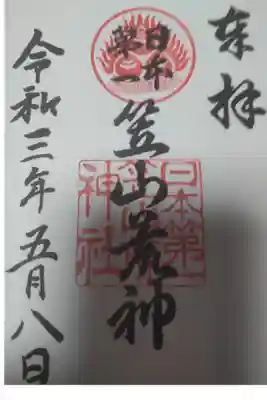 奉拝
日本第一
笠山荒神
日本第一
笠山荒神社
令和三年五月八日